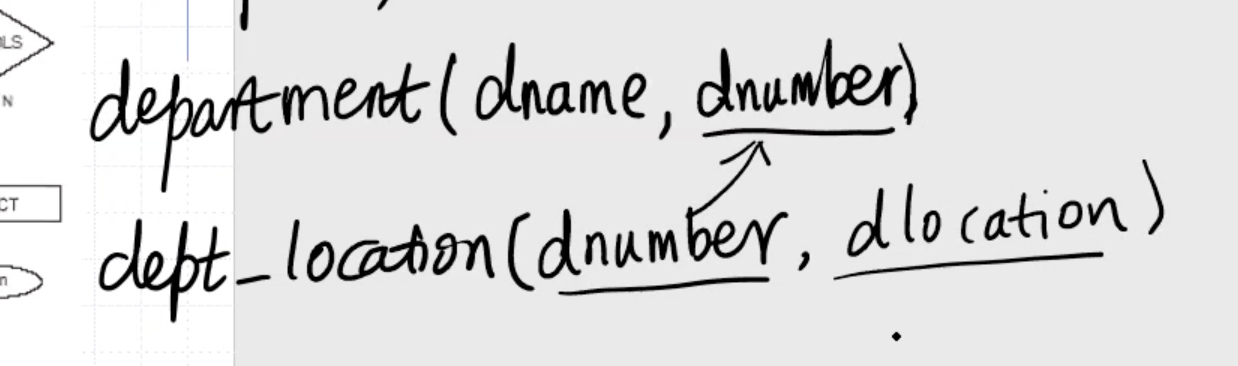 LS
N
department(dname, dnumber)
CT
dept_location(dnumber, dlocation)
n